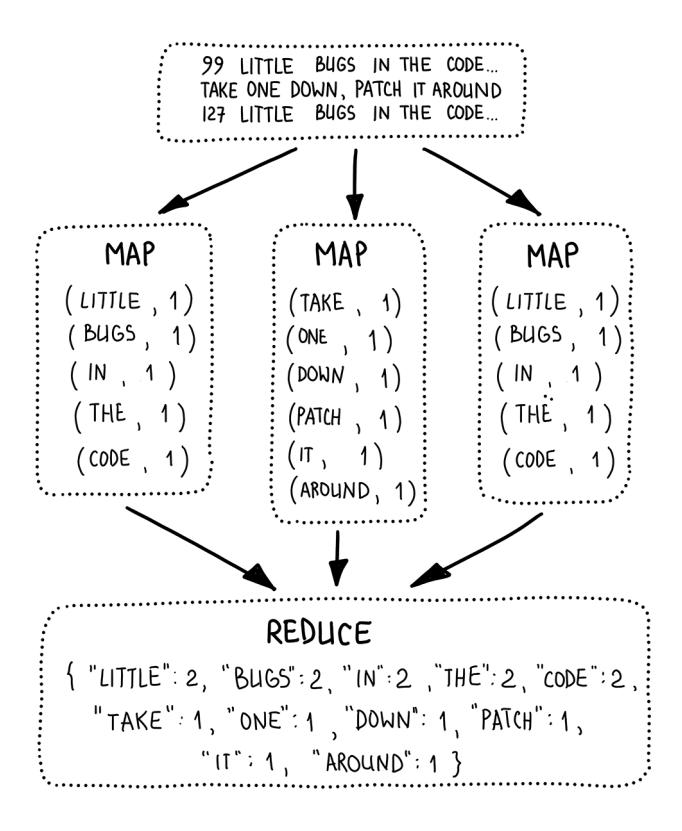 99 LITTLE BUGS IN THE CODE...
TAKE ONE DOWN, PATCH IT AROUND
127 LITTLE BUGS IN THE CODE...
MAP
(LITTLE, 1)
(BUGS, 1)
(IN, 1)
(THE, 1)
(CODE, 1)
MAP
(TAKE, 1)
(ONE, 1)
(DOWN, 1)
(PATCH, 1)
(IT, 1)
(AROUND, 1)
MAP
(LITTLE, 1)
(BUGS, 1)
(IN, 1)
(THE, 1)
(CODE, 1)
REDUCE
{ "LITTLE": 2, "BUGS": 2, "IN": 2, "THE": 2, "CODE": 2,
"TAKE": 1, "ONE": 1, "DOWN": 1, "PATCH": 1,
"IT": 1, "AROUND": 1 }